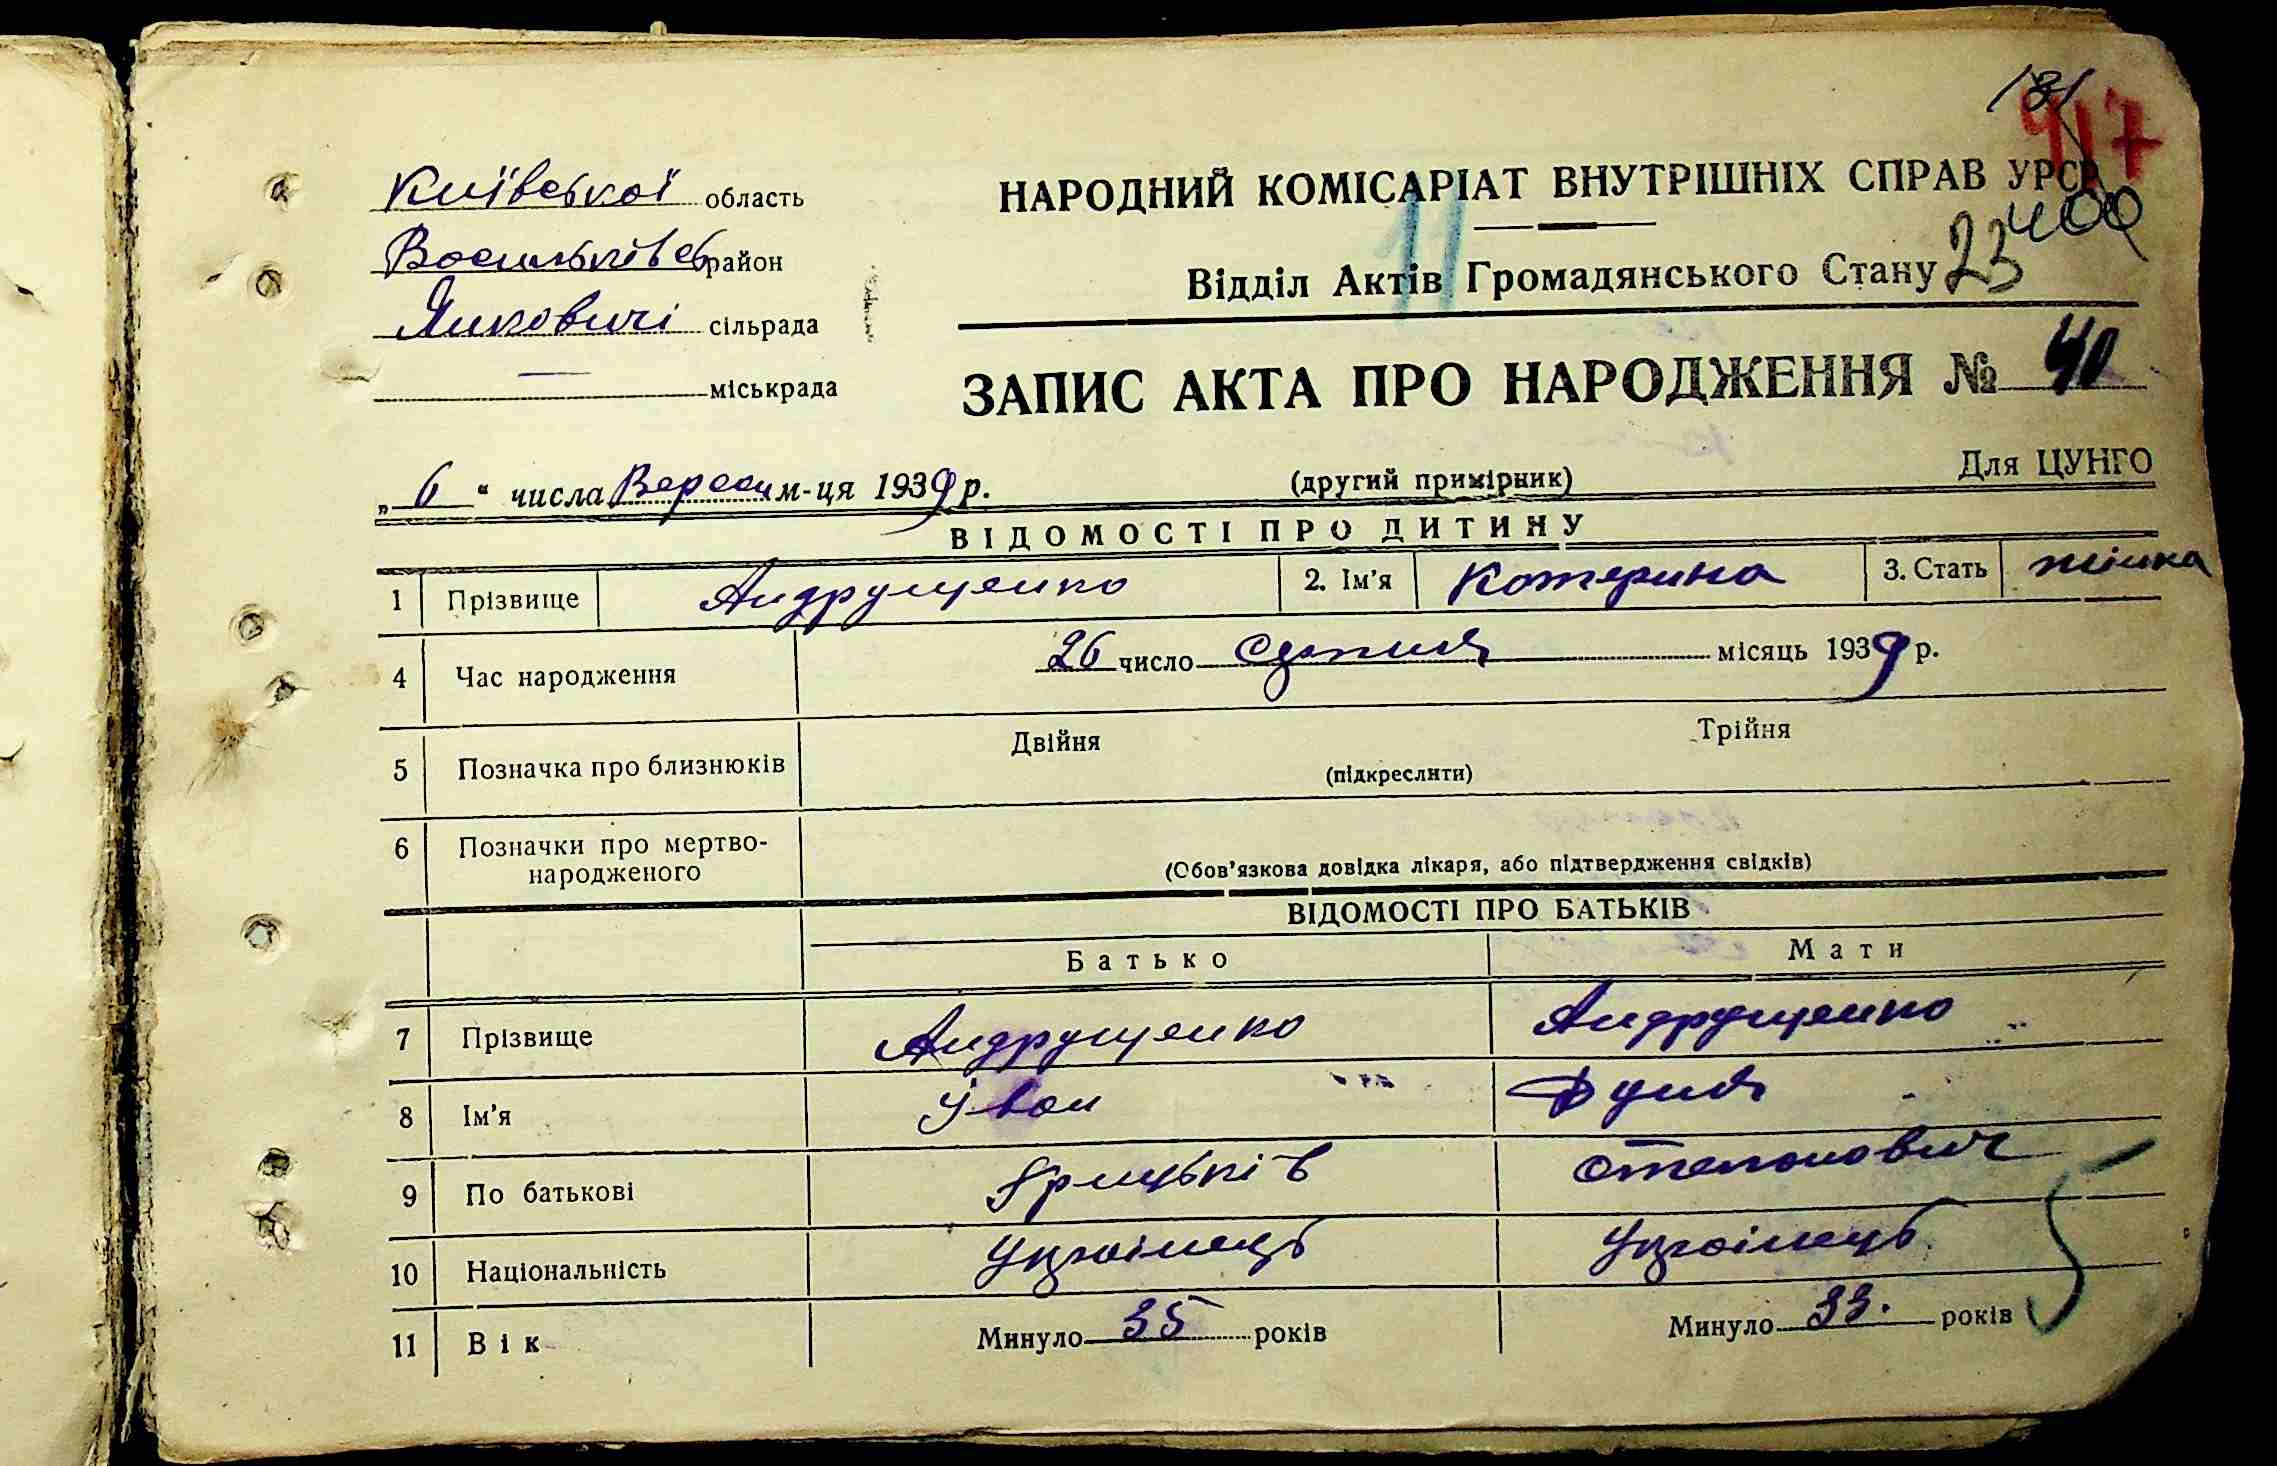 131
417
Київської область
НАРОДНИЙ КОМІСАРІАТ ВНУТРІШНІХ СПРАВ УРСР
400
Васильківсь район
11
Відділ Актів Громадянського Стану 23
Янковичі сільрада
міськрада
ЗАПИС АКТА ПРО НАРОДЖЕННЯ № 40
„ 6 “ числа Вересн м-ця 1939 р.
(другий примірник)
Для ЦУНГО
ВІДОМОСТІ ПРО ДИТИНУ
1 Прізвище Андрущенко 2. Ім’я Катерина 3. Стать жінка
4 Час народження 26 число серпня місяць 1939 р.
5 Позначка про близнюків Двійня Трійня
(підкреслити)
6 Позначки про мертво-
народженого
(Обов’язкова довідка лікаря, або підтвердження свідків)
ВІДОМОСТІ ПРО БАТЬКІВ
Батько Мати
7 Прізвище Андрущенко Андрущенко
8 Ім’я Іван Дуня
9 По батькові Грицьків Степанович
10 Національність Українець Українець
11 Вік Минуло 35 років Минуло 33. років